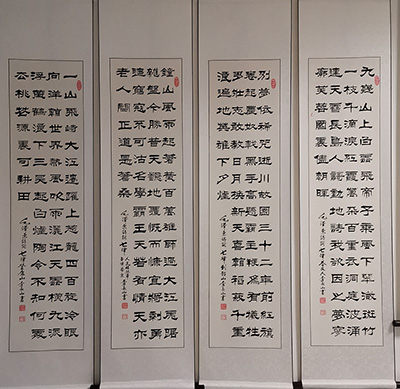 九嶷山上白雲飛帝子乘風下翠微斑竹
一枝千滴淚紅霞萬朵百重衣洞庭波涌
連天雪長島人歌動地詩我欲因之夢寥
廓芙蓉國裏盡朝暉
毛澤東詩詞
七律答友人
別夢依稀咒逝川故園三十二年前紅旗
卷起農奴戟黑手高懸霸主鞭爲有犧牲
多壯志敢教日月換新天喜看稻菽千重
浪遍地英雄下夕煙
毛澤東詩詞
鐘山風雨起蒼黃百萬雄師過大江虎踞
龍盤今勝昔天翻地覆慨而慷宜將剩勇
追窮寇不可沽名學霸王天若有情天亦
老人間正道是滄桑
毛澤東詩詞
一山飛峙大江邊躍上蔥蘢四百旋冷眼
向洋看世界熱風吹雨灑江天雲橫九派
浮黃鶴浪下三吳起白煙陶令不知何處
去桃花源裏可耕田
毛澤東詩詞
七律登廬山